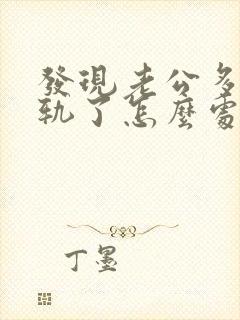 發現老公多
軌了怎麼處
丁墨